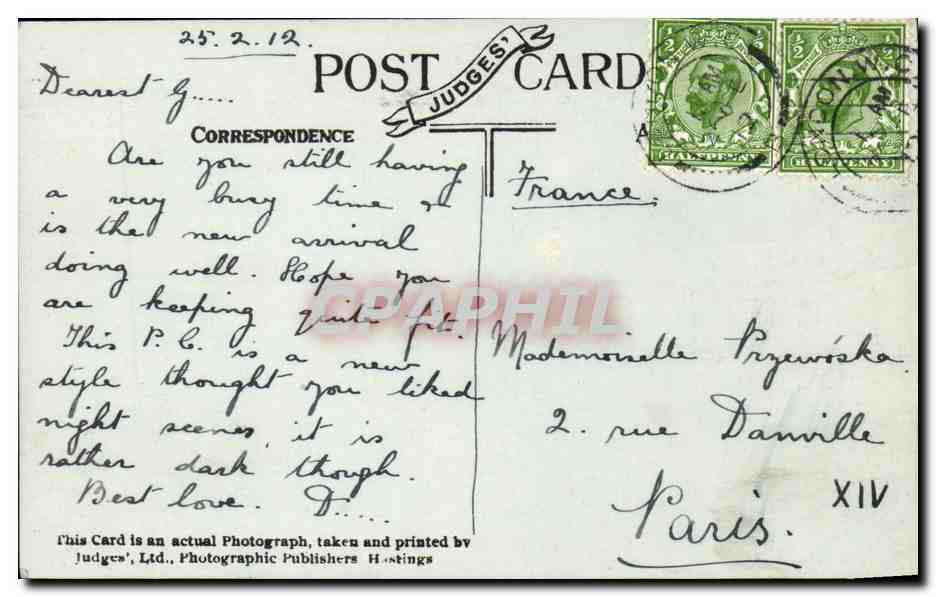 25.2.12.
POST CARD
JUDGES'
Dearest G.....
CORRESPONDENCE
Are you still having
a very busy time &
is the new arrival
doing well. Hope you
are keeping quite fit.
This P.C. is a new
style thought you liked
night scenes, it is
rather dark though.
Best love. D.....
This Card is an actual Photograph, taken and printed by
Judges', Ltd., Photographic Publishers Hastings
½ ½
HALFPENNY
½ ½
HALFPENNY
AM
AM
France.
Mademoiselle Przewóska.
2. rue Danville
Paris.
XIV
CPAPHIL